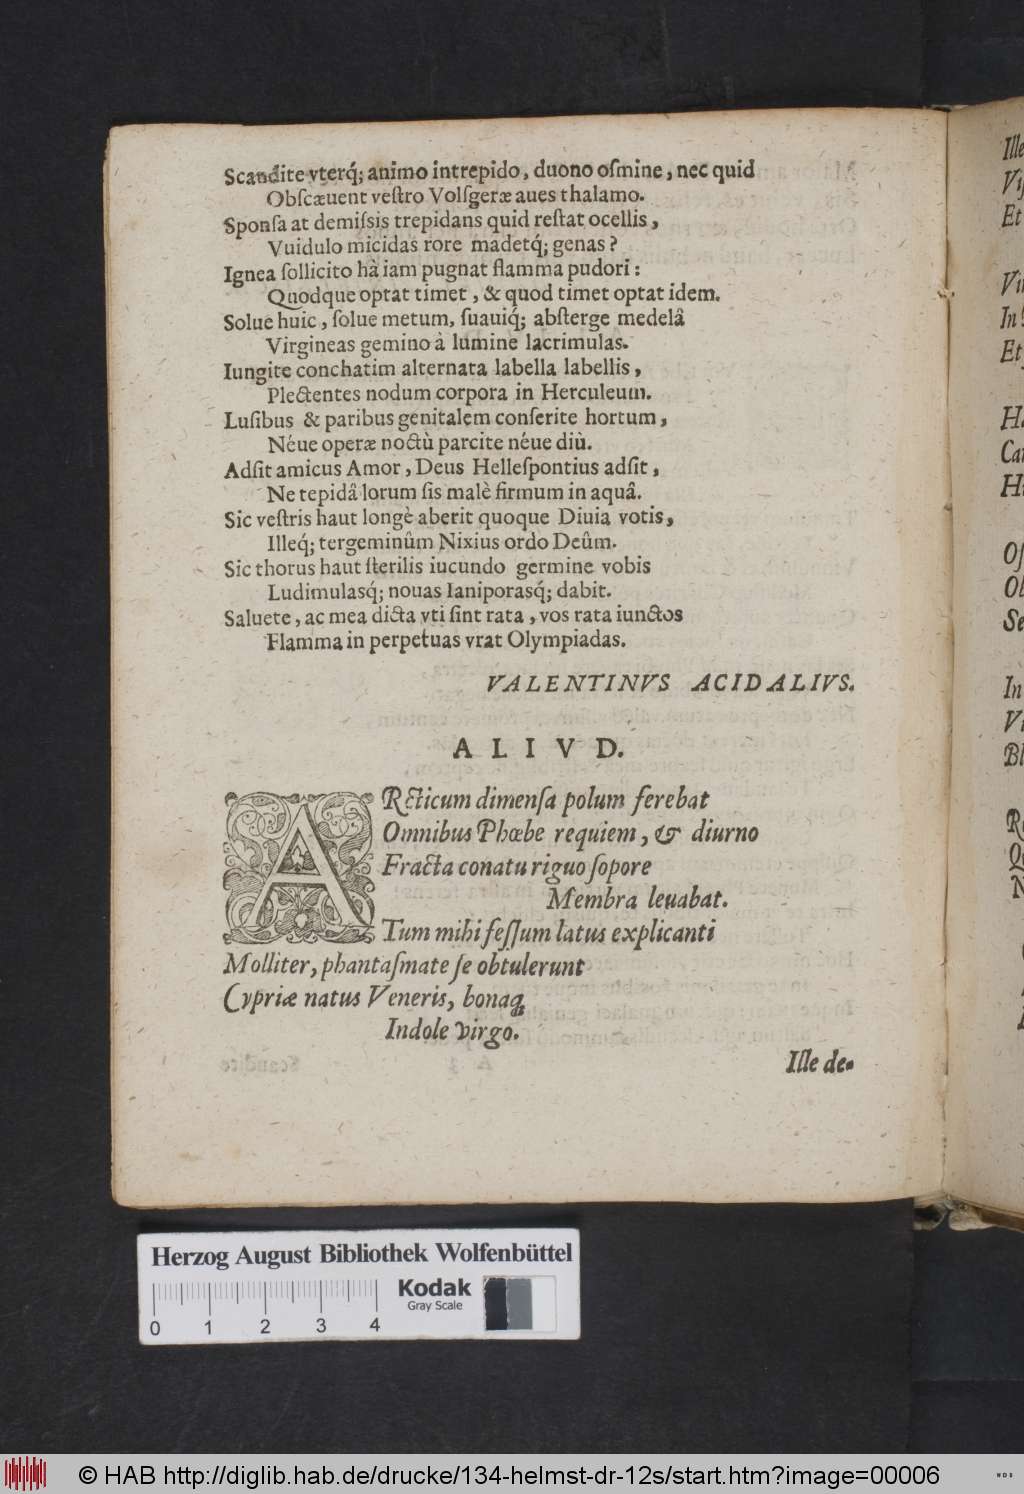 Scandite vterq́; animo intrepido, duono oſmine, nec quid
Obſcæuent veſtro Volſgeræ aues thalamo.
Sponſa at demiſsis trepidans quid reſtat ocellis,
Vuidulo micidas rore madetq́; genas?
Ignea ſollicito hà iam pugnat flamma pudori:
Quodque optat timet, & quod timet optat idem.
Solue huic, ſolue metum, ſuauiq́; abſterge medelâ
Virgineas gemino à lumine lacrimulas.
Iungite conchatim alternata labella labellis,
Plectentes nodum corpora in Herculeum.
Luſibus & paribus genitalem conſerite hortum,
Néue operæ noctù parcite néue diù.
Adſit amicus Amor, Deus Helleſpontius adſit,
Ne tepidâ lorum ſis malè firmum in aquâ.
Sic veſtris haut longè aberit quoque Diuia votis,
Illeq́; tergeminûm Nixius ordo Deûm.
Sic thorus haut ſterilis iucundo germine vobis
Ludimulasq́; nouas Ianiporasq́; dabit.
Saluete, ac mea dicta vti ſint rata, vos rata iunctos
Flamma in perpetuas vrat Olympiadas.
VALENTINVS ACIDALIVS.
ALIVD.
ARcticum dimenſa polum ferebat
Omnibus Phœbe requiem, & diurno
Fracta conatu riguo ſopore
Membra leuabat.
Tum mihi feſſum latus explicanti
Molliter, phantaſmate ſe obtulerunt
Cypriæ natus Veneris, bonaq́;
Indole virgo.
Ille de-
Ille
Et
Et
Herzog August Bibliothek Wolfenbüttel
Kodak
Gray Scale
0 1 2 3 4
© HAB http://diglib.hab.de/drucke/134-helmst-dr-12s/start.htm?image=00006